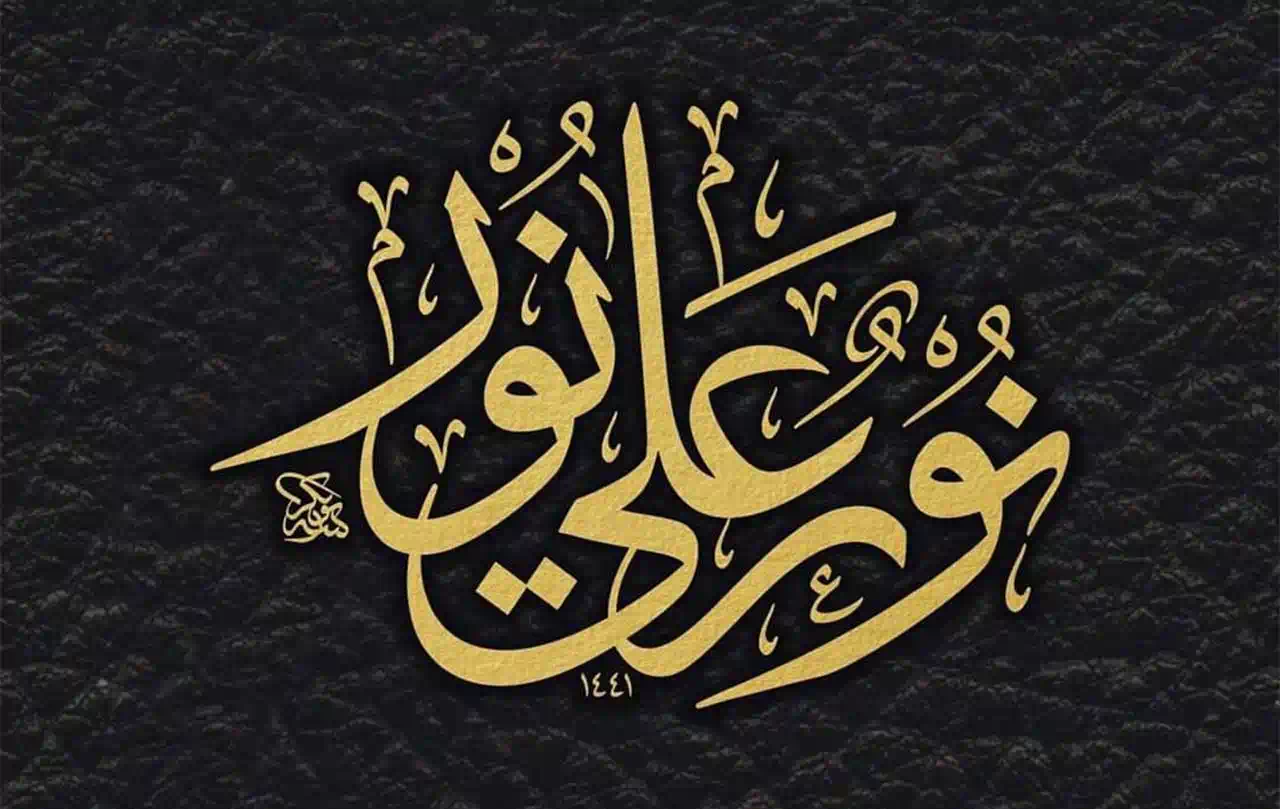 نُورٌ عَلَي نُور
١٤٤١